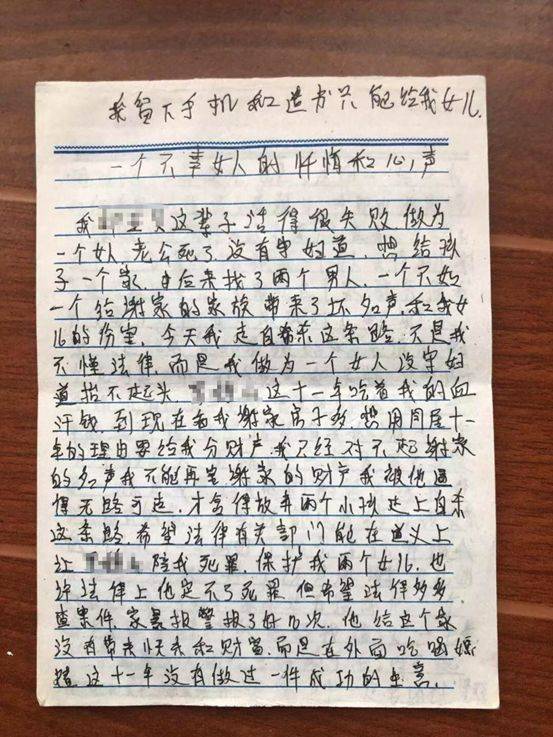 我留下手机和遗书只能给我女儿.
一个不幸女人的忏悔和心声
我这辈子活得很失败,做为
一个女人,老公死了,没有守妇道,想给孩
子一个家,由后来找了两个男人,一个不如
一个给谢家的家族带来了坏名声,和我女
儿的伤害,今天我走自杀这条路,不是我
不懂法律,而是我做为一个女人没守妇
道抬不起头,这十一年吃着我的血
汗钱,到现在看我谢家房子多,想用同居十一
年的理由要给我分财产,我已经对不起谢家
的名声我不能再害谢家的财产我被他逼
得无路可走,才舍得放弃两个小孩走上自杀
这条路,希望法律有关部门能在道义上
让陪我死罪,保护我两个女儿,也
许法律上他定不了死罪,但希望法律多多
查案件,家暴报警报了好几次,他给这个家
没有带来快乐和财富,而是在外面吃喝嫖
赌,这十一年没有做过一件成功的生意.